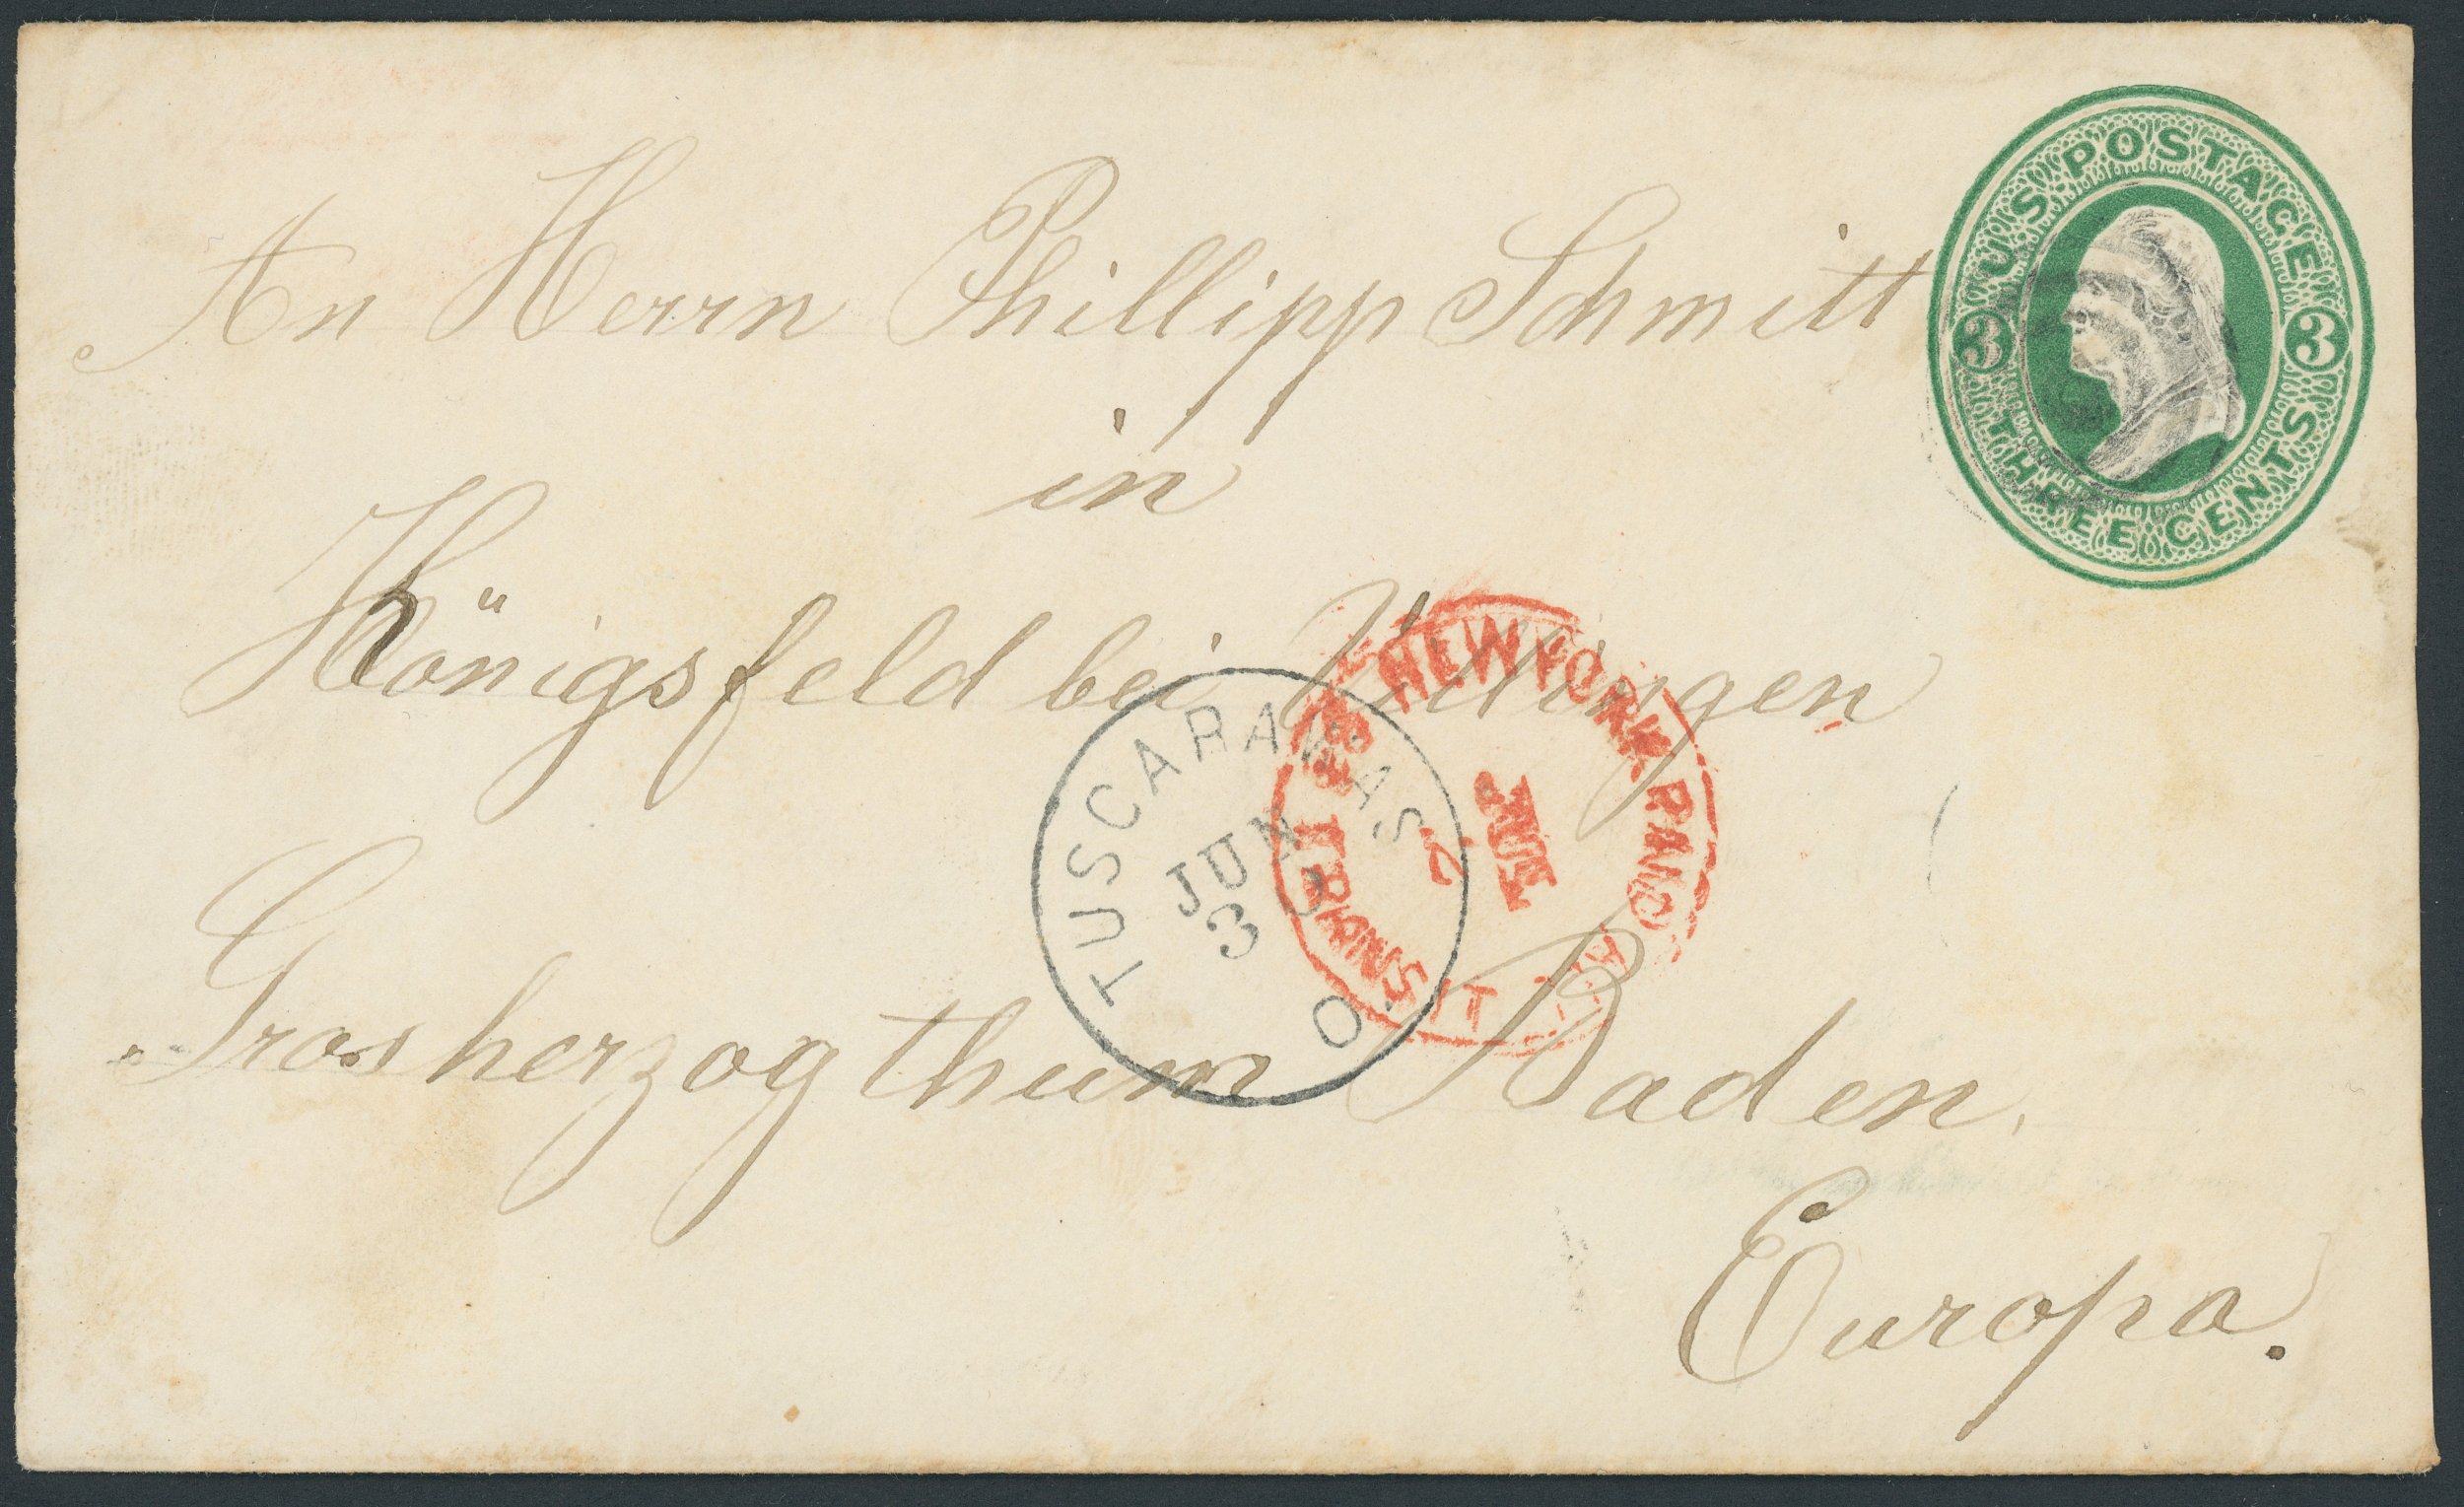 U.S. POSTAGE
3 3
THREE CENTS
An Herrn Phillipp Schmitt
in
Königsfeld bei Villingen
Grosherzogthum Baden.
Europa.
TUSCARAWAS
JUN
3
O.
NEW YORK PAID ALL
TRANSIT